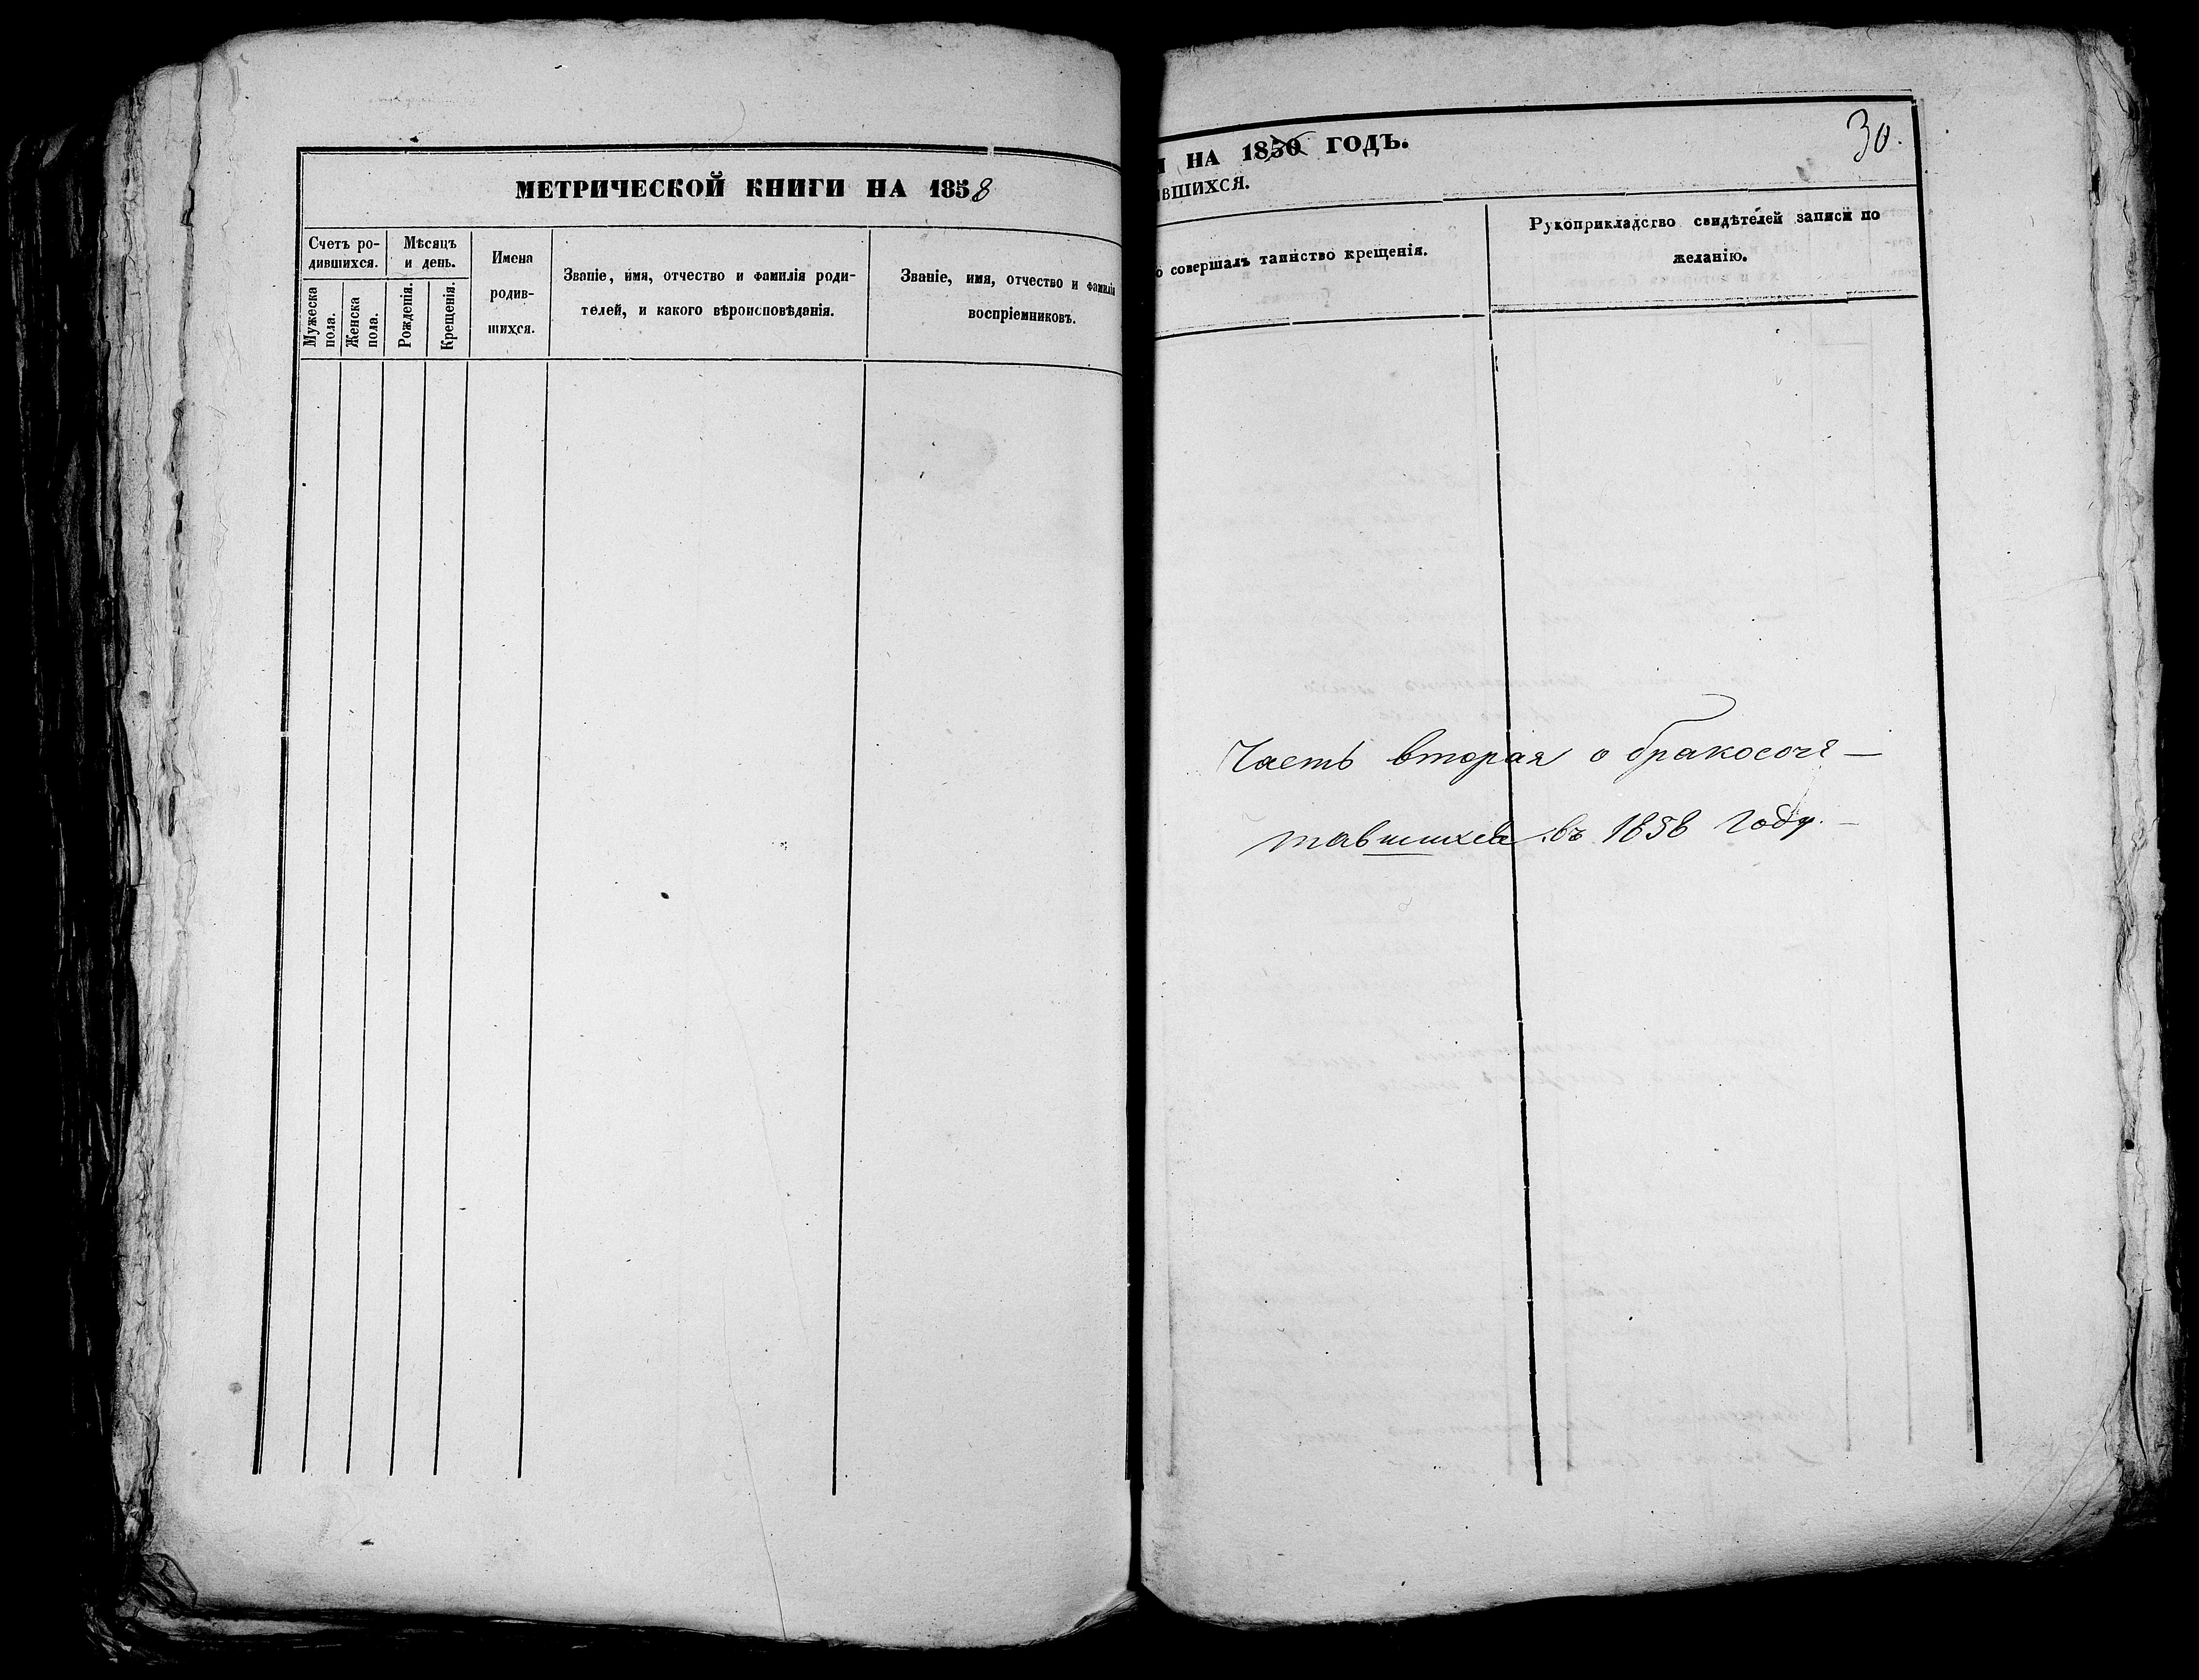 МЕТРИЧЕСКОЙ КНИГИ НА 1858
Счетъ ро-
дившихся.
Мѣсяцъ
и день.
Имена
родив-
шихся.
Званіе, имя, отчество и фамилія роди-
телей, и какого вѣроисповѣданія.
Званіе, имя, отчество и фамилія
воспріемниковъ.
Мужеска
пола.
Женска
пола.
Рожденія.
Крещенія.
И НА 1850 ГОДЪ.
30.
ВШИХСЯ.
о совершалъ таинство крещенія.
Рукоприкладство свидѣтелей записи по
желанію.
Часть вторая о бракосоче-
тавшихся въ 1858 году.